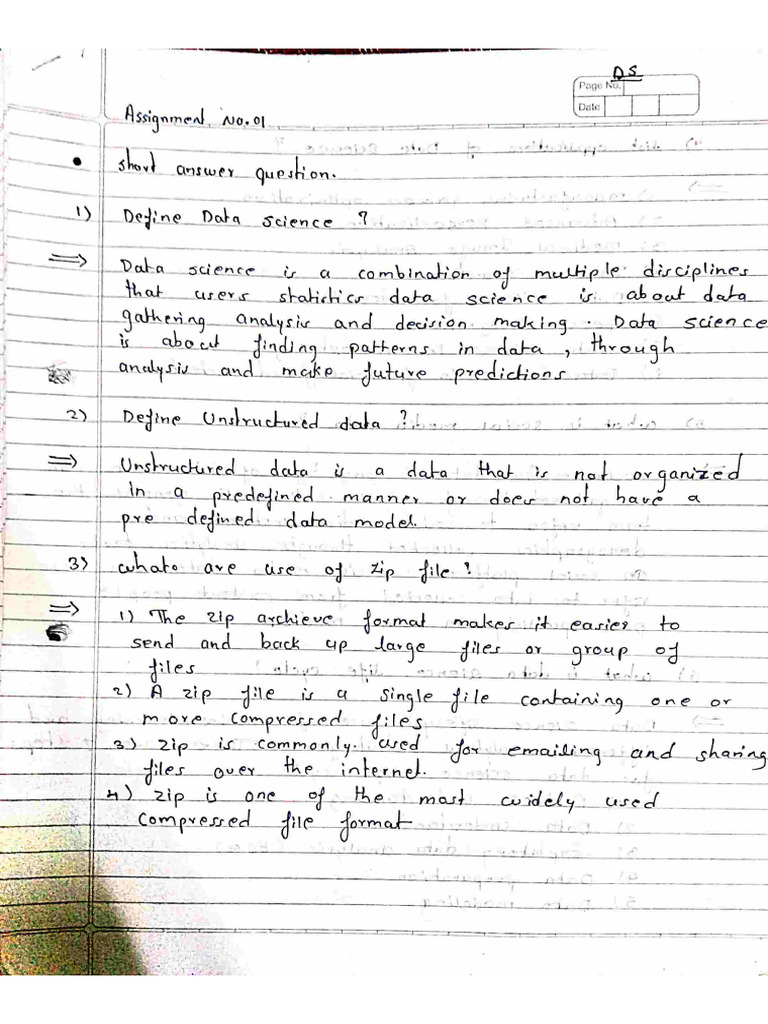 DS
Page No.
Date
Assignment No. 01
• short answer question.
1) Define Data science ?
⇒ Data science is a combination of multiple disciplines
that users statistics data science is about data
gathering analysis and decision making. Data science
is about finding patterns in data, through
analysis and make future predictions
2) Define Unstructured data ?
⇒ Unstructured data is a data that is not organized
in a predefined manner or does not have a
pre defined data model.
3) whato are use of zip file ?
⇒ 1) The zip archieve format makes it easier to
send and back up large files or group of
files
2) A zip file is a single file containing one or
more compressed files
3) zip is commonly used for emailing and sharing
files over the internet.
4) zip is one of the most widely used
compressed file format